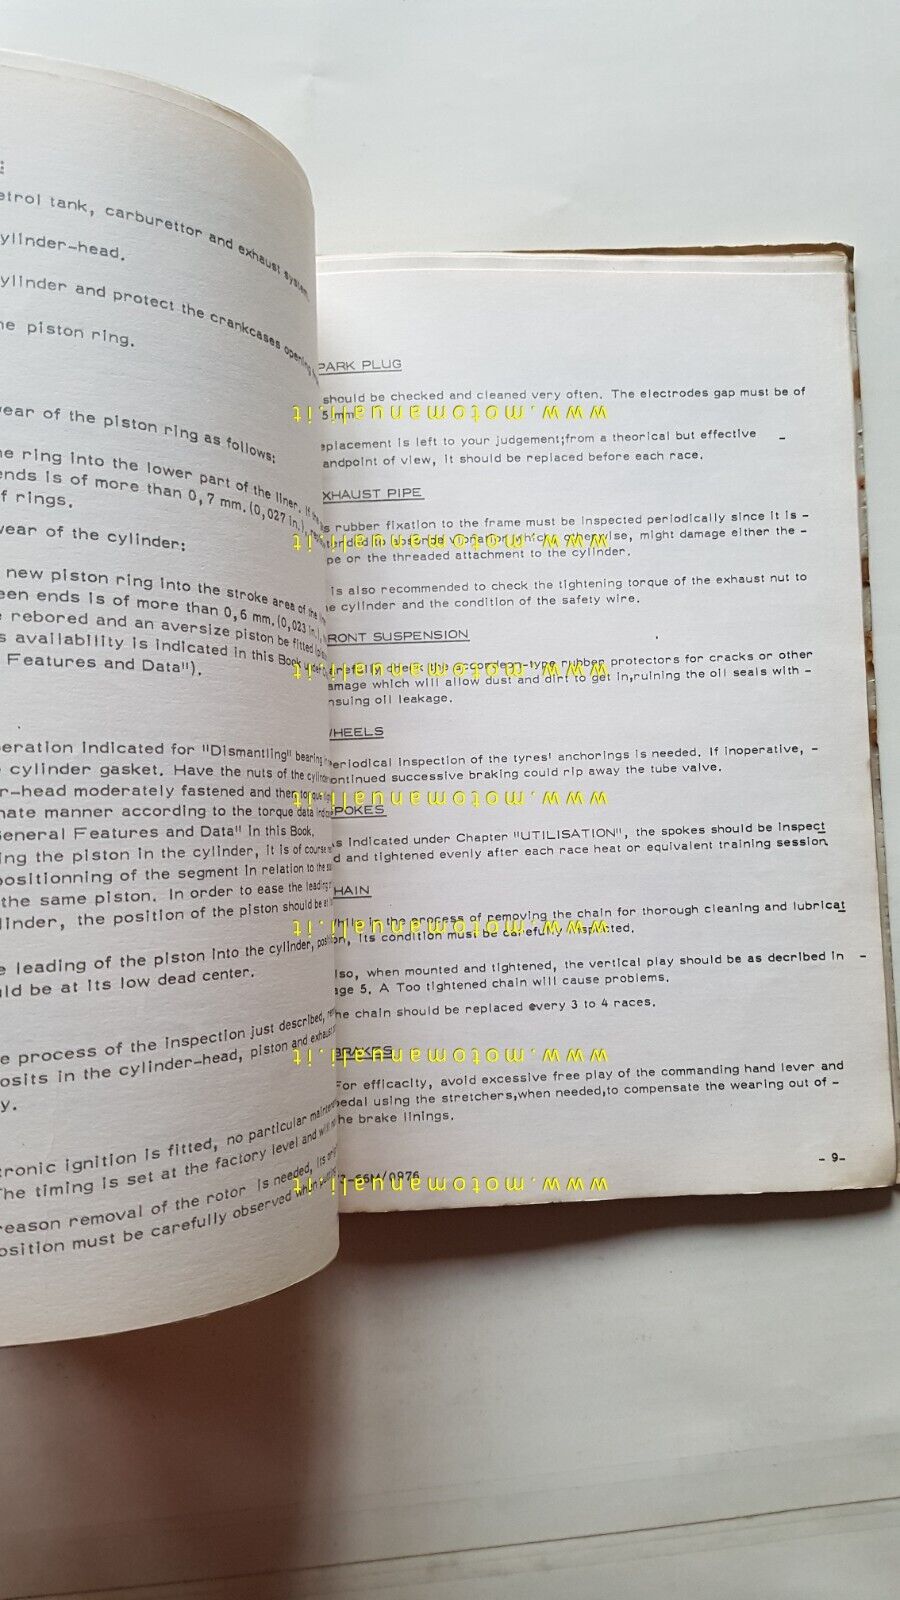 petrol tank, carburettor and exhaust system.
cylinder-head.
cylinder and protect the crankcases opening
the piston ring.
wear of the piston ring as follows:
the ring into the lower part of the liner. If the
ends is of more than 0,7 mm.(0,027 in.),
of rings.
wear of the cylinder:
new piston ring into the stroke area of the
een ends is of more than 0,6 mm.(0,023 in.),
rebored and an aversize piston be fitted
s availability is indicated in this Book
Features and Data").
peration indicated for "Dismantling" bearing in
cylinder gasket. Have the nuts of the cylinder
er-head moderately fastened and then torque
nate manner according to the torque data
General Features and Data" in this Book.
ing the piston in the cylinder, it is of course
positionning of the segment in relation to the
the same piston. In order to ease the leading
linder, the position of the piston should be at
e leading of the piston into the cylinder,
uld be at its low dead center.
e process of the inspection just described,
posits in the cylinder-head, piston and exhaust
y.
tronic ignition is fitted, no particular
The timing is set at the factory level and will
reason removal of the rotor is needed, its
position must be carefully observed when
PARK PLUG
should be checked and cleaned very often. The electrodes gap must be of
5 mm
eplacement is left to your judgement;from a theorical but effective -
andpoint of view, it should be replaced before each race.
XHAUST PIPE
s rubber fixation to the frame must be inspected periodically since it is -
tended to absorbe vibration which, otherwise, might damage either the -
pe or the threaded attachment to the cylinder.
is also recommended to check the tightening torque of the exhaust nut to
he cylinder and the condition of the safety wire.
RONT SUSPENSION
arefully check the accordeon-type rubber protectors for cracks or other
amage which will allow dust and dirt to get in,ruining the oil seals with -
nsuing oil leakage.
WHEELS
Periodical inspection of the tyres' anchorings is needed. If inoperative, -
ontinued successive braking could rip away the tube valve.
SPOKES
s indicated under Chapter "UTILISATION", the spokes should be inspect
d and tightened evenly after each race heat or equivalent training session.
HAIN
While in the process of removing the chain for thorough cleaning and lubricat
on, its condition must be carefully inspected.
lso, when mounted and tightened, the vertical play should be as decribed in -
age 5. A Too tightened chain will cause problems.
he chain should be replaced every 3 to 4 races.
BRAKES
For efficacity, avoid excessive free play of the commanding hand lever and
pedal using the stretchers,when needed,to compensate the wearing out of -
he brake linings.
- 9-
GSM/0976
www.motomanuali.it
www.motomanuali.it
www.motomanuali.it
www.motomanuali.it
www.motomanuali.it
www.motomanuali.it
www.motomanuali.it